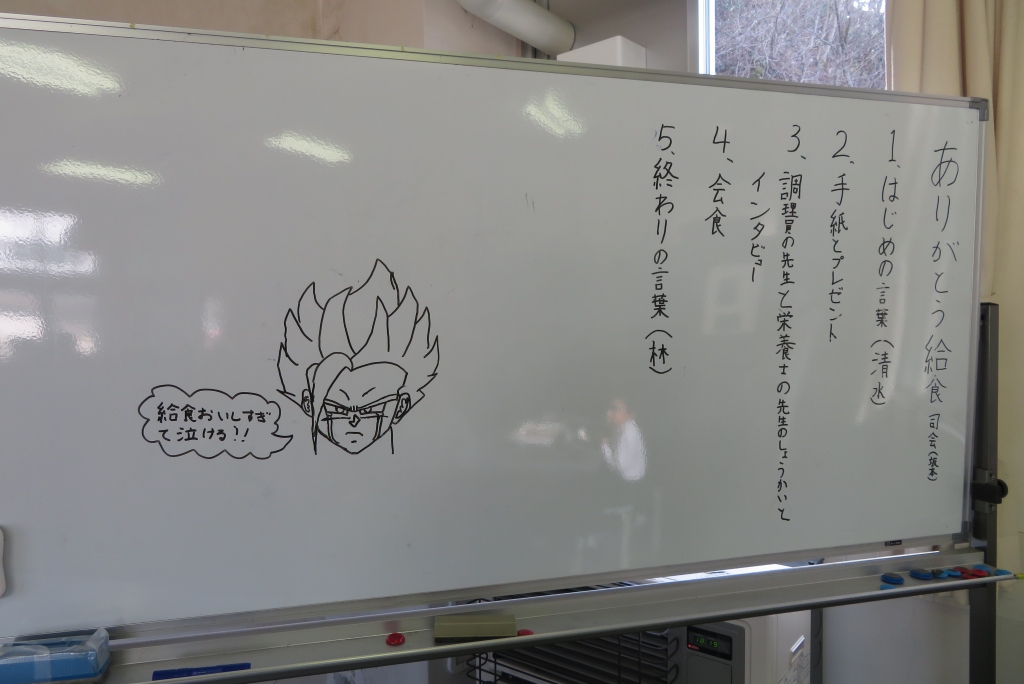 ありがとう給食 司会(坂本)
1、はじめの言葉(清水)
2、手紙とプレゼント
3、調理員の先生と栄養士の先生のしょうかいと
インタビュー
4、会食
5、終わりの言葉(林)
給食おいしすぎ
て泣ける?!